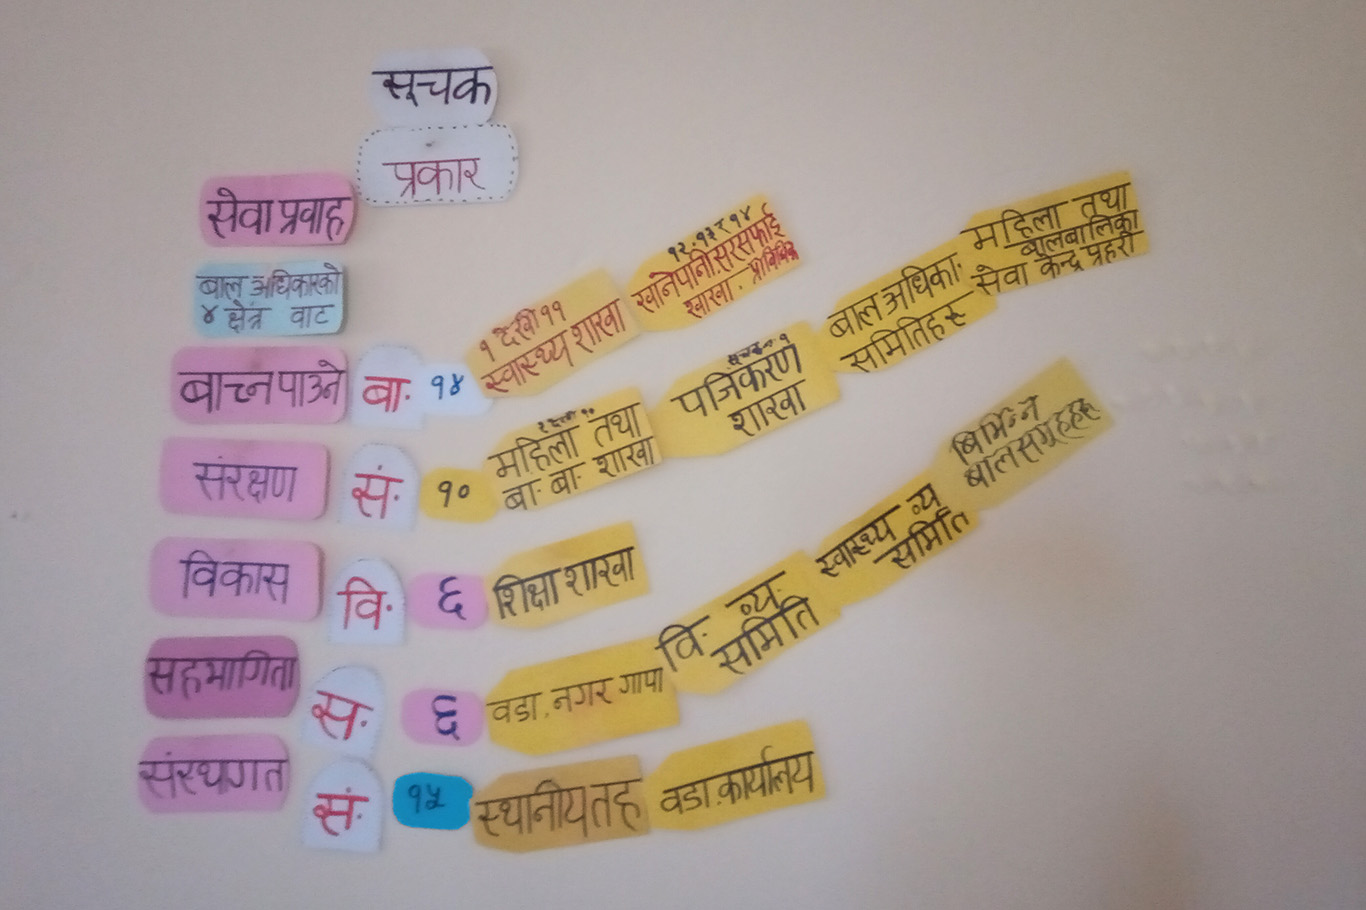 सूचक
प्रकार
सेवा प्रवाह
बाल अधिकारको
४ क्षेत्र वाट
बाच्न पाउने
बा.
१४
१ देखी ११
स्वास्थ्य शाखा
१२.१३ र १४
खानेपानी.सरसफाई
शाखा. प्राविधिक
संरक्षण
सं.
१०
२ देखी १०
महिला तथा
बा. बा. शाखा
सूचक न. १
पंजिकरण
शाखा
बाल अधिका.
समितिहरु
महिला तथा
बालबालिका
सेवा केन्द्र प्रहरी
विकास
वि.
६
शिक्षा शाखा
सहभागिता
स.
६
वडा.नगर गापा
वि. व्य.
समिति
स्वास्थ्य व्य
समिति
बिभिन्न
बालसमूहहरु
संस्थागत
सं.
१५
स्थानीय तह
वडा.कार्यालय